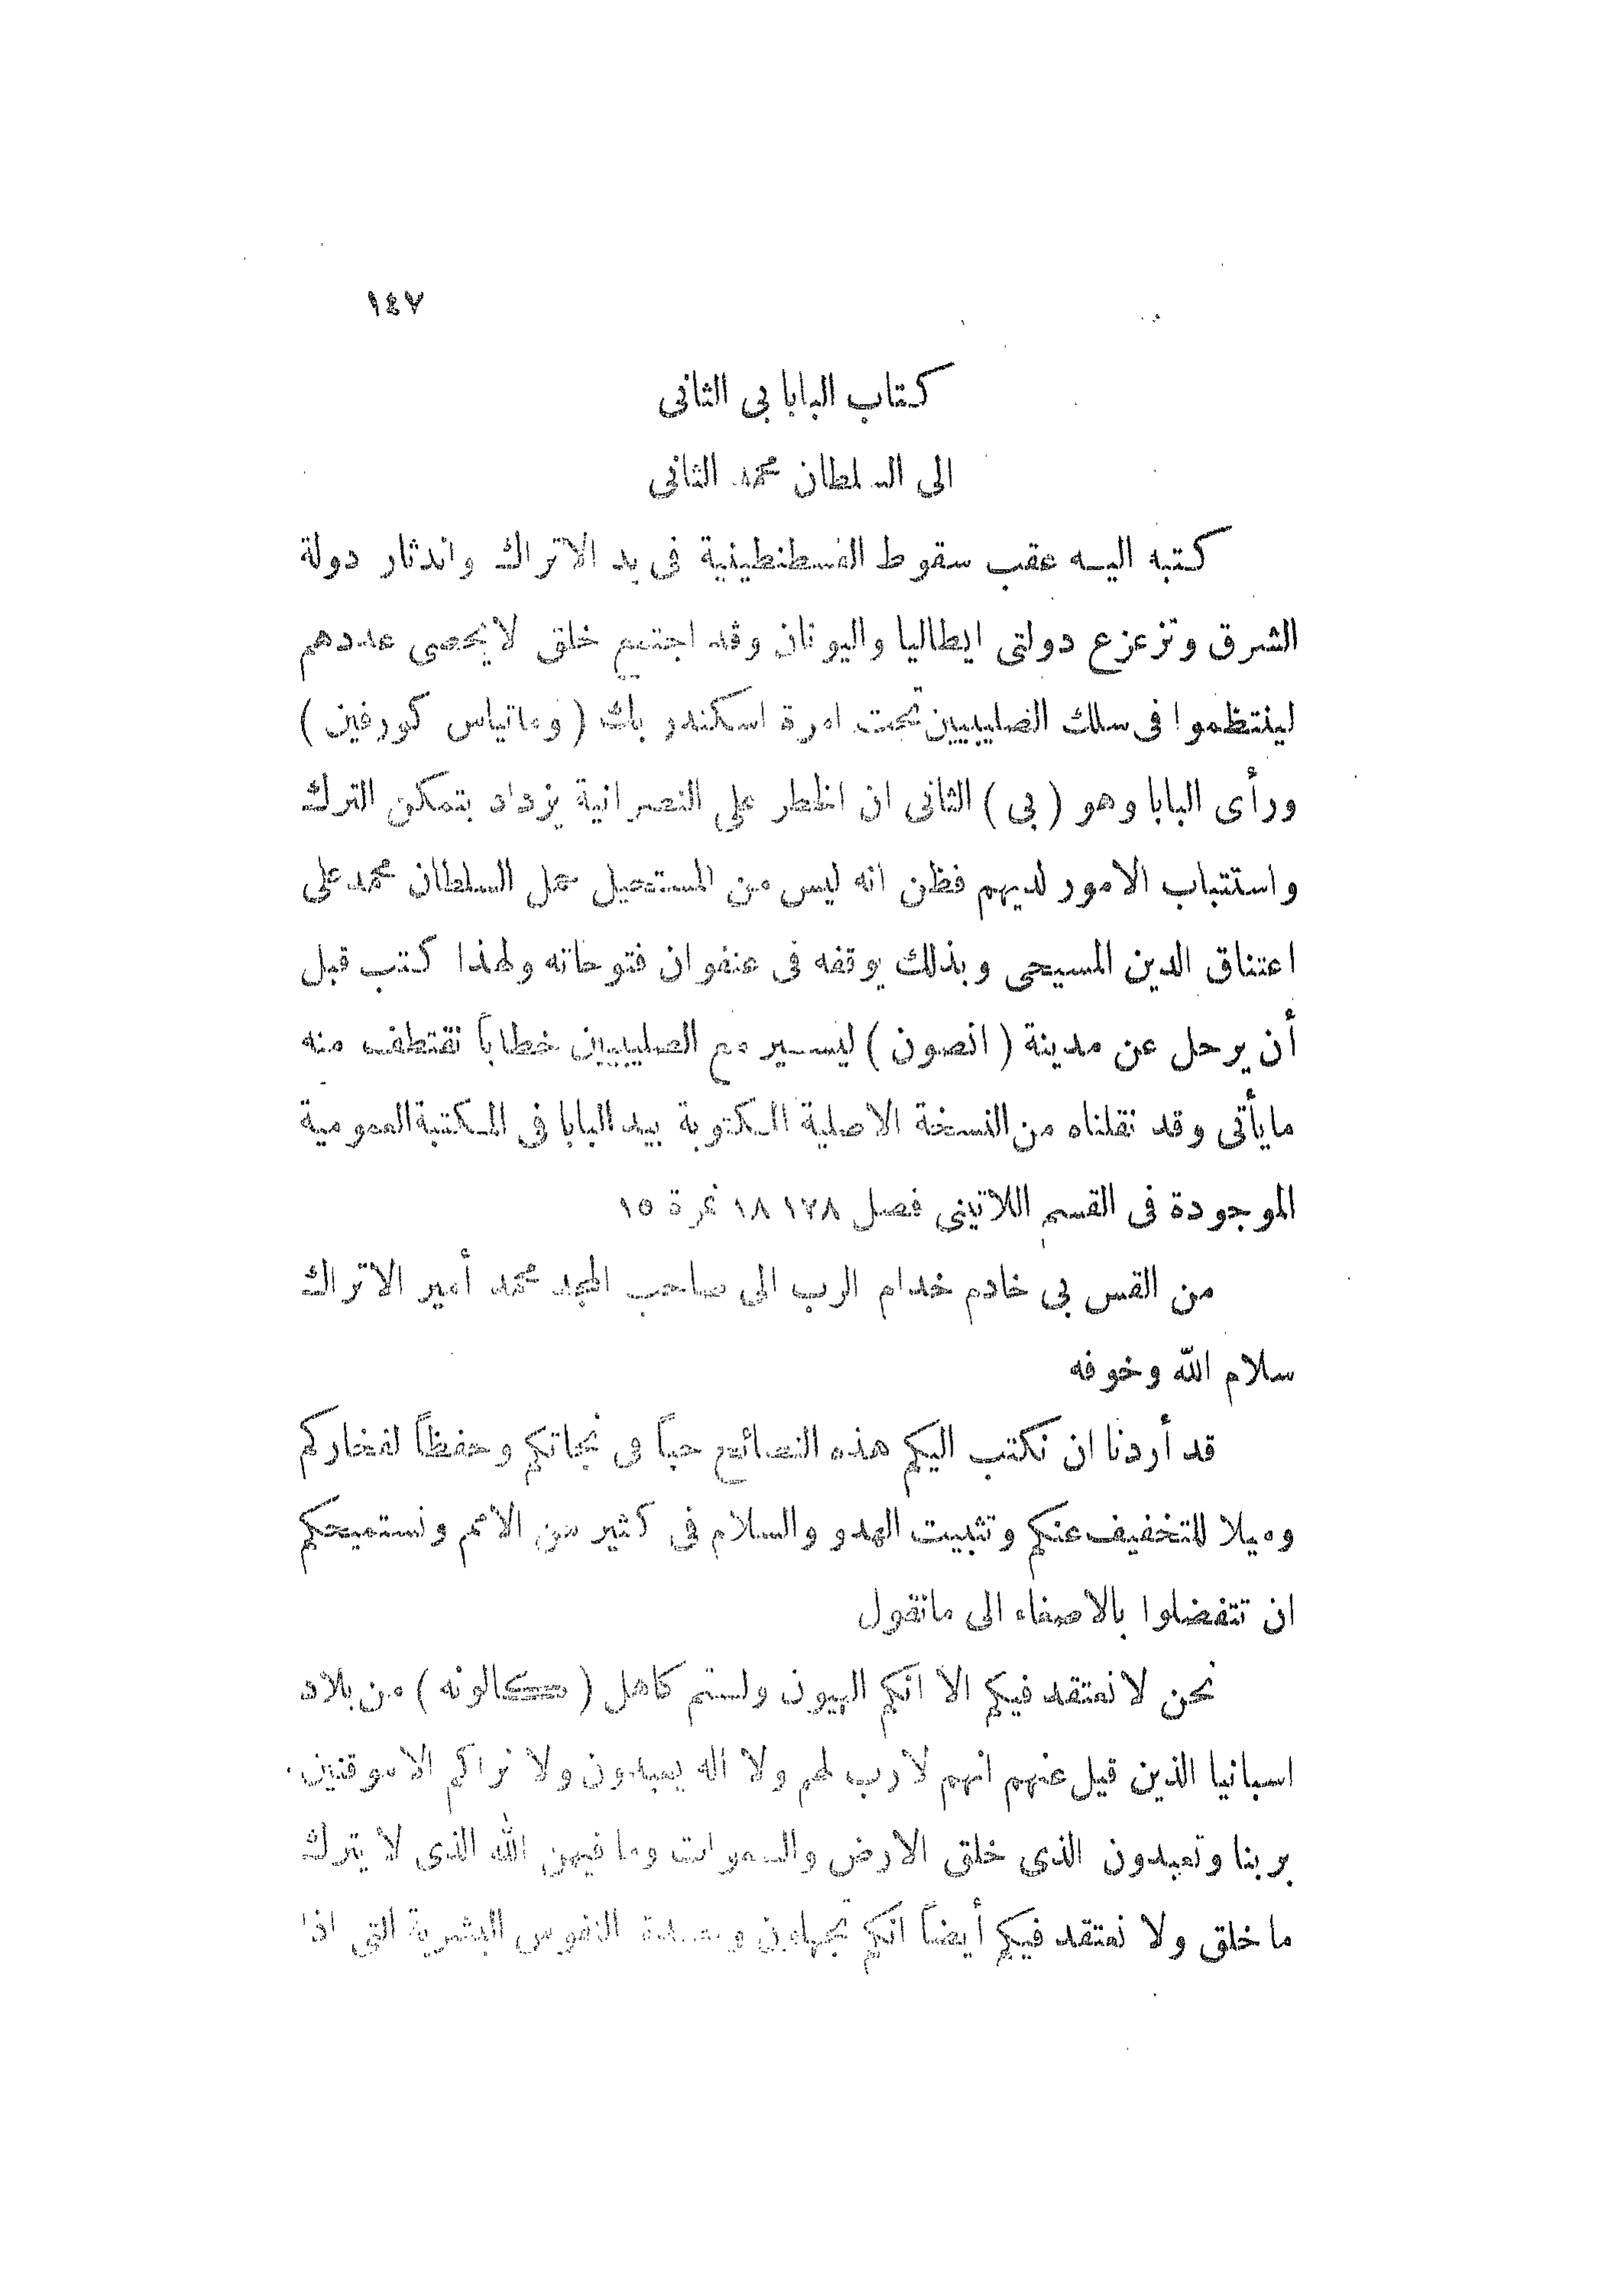 ١٤٧
كتاب البابا بي الثانى
الى السلطان محمد الثانى
كتبه اليه عقب سقوط القسطنطينية فى يد الاتراك واندثار دولة
الشرق وتزعزع دولتى ايطاليا واليونان وقد اجتمع خلق لا يحصى عددهم
لينتظموا فى سلك الصليبيين تحت امرة اسكندر بك ( وماتياس كورفين )
ورأى البابا وهو ( بي ) الثانى ان الخطر على النصرانية يزداد بتمكن الترك
واستتباب الامور لديهم فظن انه ليس من المستحيل حمل السلطان محمد على
اعتناق الدين المسيحى وبذلك يوقفه فى عنفوان فتوحاته ولهذا كتب قبل
أن يرحل عن مدينة ( انصون ) ليسير مع الصليبيين خطاباً نقتطف منه
مايأتى وقد نقلناه من النسخة الاصلية المكتوبة بيد البابا فى المكتبة العمومية
الموجودة فى القسم اللاتينى فصل ١٨١٧٨ نمرة ١٥
من القس بي خادم خدام الرب الى صاحب المجد محمد أمير الاتراك
سلام الله وخوفه
قد أردنا ان نكتب اليكم هذه النصائح حباً فى نجاتكم وحفظاً لفخاركم
وميلا للتخفيف عنكم وتثبيت الهدو والسلام فى كثير من الامم ونستميحكم
ان تتفضلوا بالاصغاء الى مانقول
نحن لا نعتقد فيكم الا انكم الهيون ولستم كاهل ( كالونه ) من بلاد
اسبانيا الذين قيل عنهم انهم لا رب لهم ولا اله يعبدون ولا نراكم الا موقنين
بربنا وتعبدون الذى خلق الارض والسموات وما فيهن الله الذى لا يترك
ما خلق ولا نعتقد فيكم أيضاً انكم تجهلون النفوس البشرية التى اذا